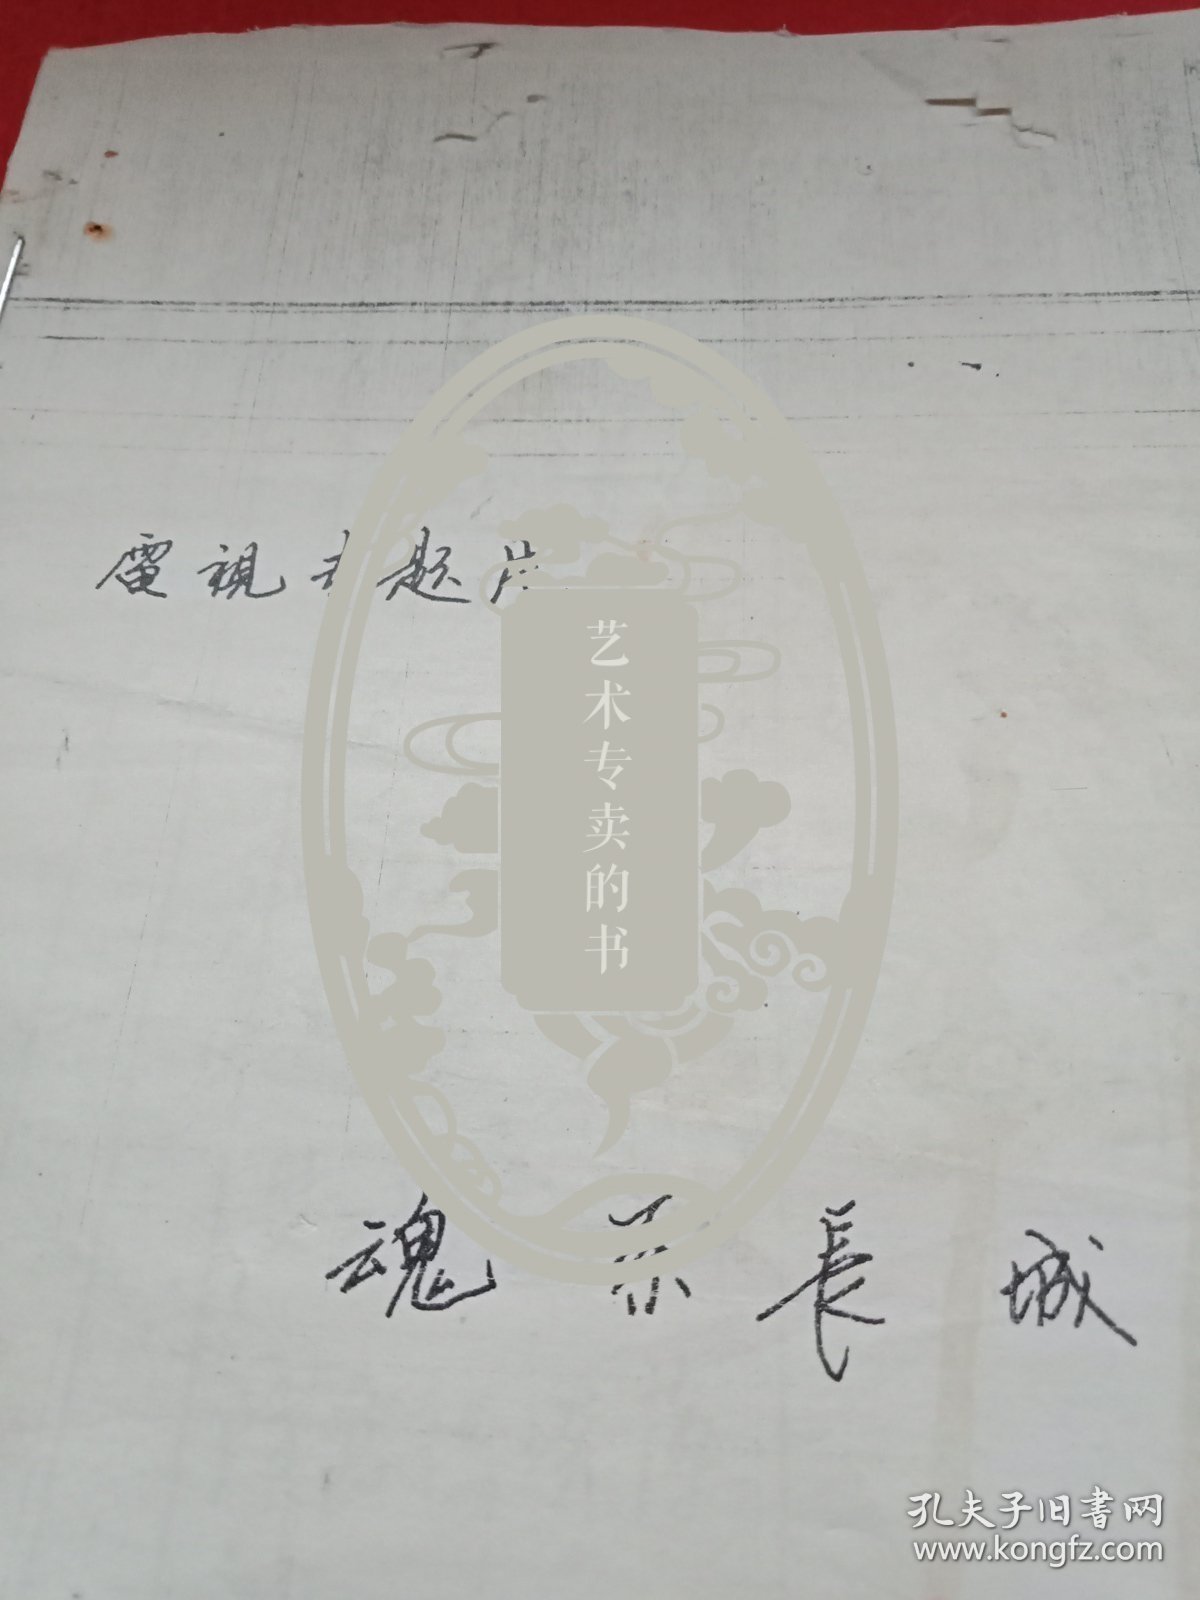 電視专题片
艺术专卖的书
魂 長城
孔夫子旧书网
www.kongfz.com